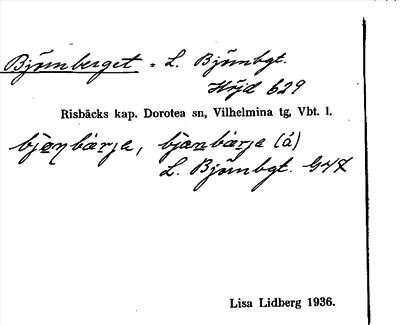 Björnberget = L. Björnbgt.
Höjd 629
Risbäcks kap. Dorotea sn, Vilhelmina tg, Vbt. l.
bjæṇbærja, bjænbærja (å)
L. Björnbgt.
Lisa Lidberg 1936.